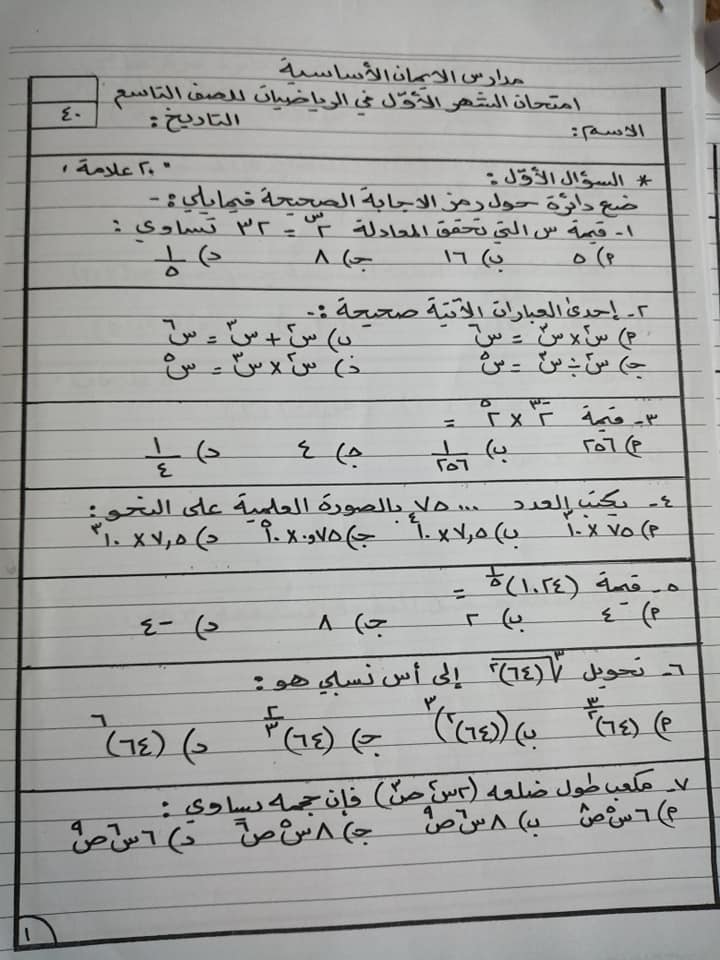 مدارس الإيمان الأساسية
امتحان الشهر الأوّل في الرياضيات للصف التاسع
٤٠
الاسم: التاريخ:
* السؤال الأوّل: ٢٠ علامة،
ضع دائرة حول رمز الاجابة الصحيحة فيما يلي:-
١- قيمة س التي تحقق المعادلة ٢^س = ٣٢ تساوي:
أ) ٥ ب) ١٦ ج) ٨ د) ١/٥
٢- إحدى العبارات الآتية صحيحة:-
أ) س^٢ × س^٣ = س^٦ ب) س^٢ + س^٣ = س^٦
ج) س^٢ ÷ س^٣ = س^٥ د) س^٢ × س^٣ = س^٥
٣- قيمة ٢^-٣ × ٢^٥ =
أ) ٢٥٦ ب) ١/٢٥٦ ج) ٤ د) ١/٤
٤- يكتب العدد ٧٥٠٠٠ بالصورة العلمية على النحو:
أ) ٧٥ × ١٠^٣ ب) ٧,٥ × ١٠^٤ ج) ٠,٧٥ × ١٠^٥ د) ٧,٥ × ١٠^٣
٥- قيمة (١٠٢٤)^١/٥ =
أ) ٤ ب) ٢ ج) ٨ د) -٤
٦- تحويل ^٣√(٦٤)^٢ إلى أس نسبي هو:
أ) (٦٤)^٣/٢ ب) ((٦٤)^٢)^٣ ج) (٦٤)^٢/٣ د) (٦٤)^٦
٧- مكعب طول ضلعه (٢س^٢ ص^٣) فإن حجمه يساوي:
أ) ٦س^٥ ص^٨ ب) ٨س^٦ ص^٩ ج) ٨س^٥ ص^٦ د) ٦س^٦ ص^٩
١